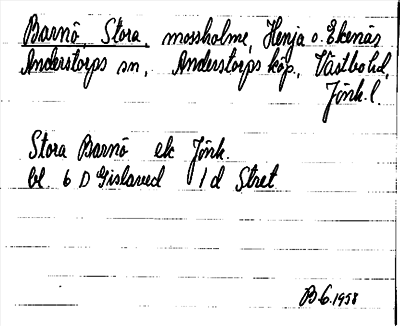 Barnö, Stora, mossholme, Henja o. Ekenäs
Anderstorps sn, Anderstorps köp., Västbo hd,
Jönk. l.
Stora Barnö ek Jönk.
bl. 6 D Gislaved 1 d Stret
B. G. 1958